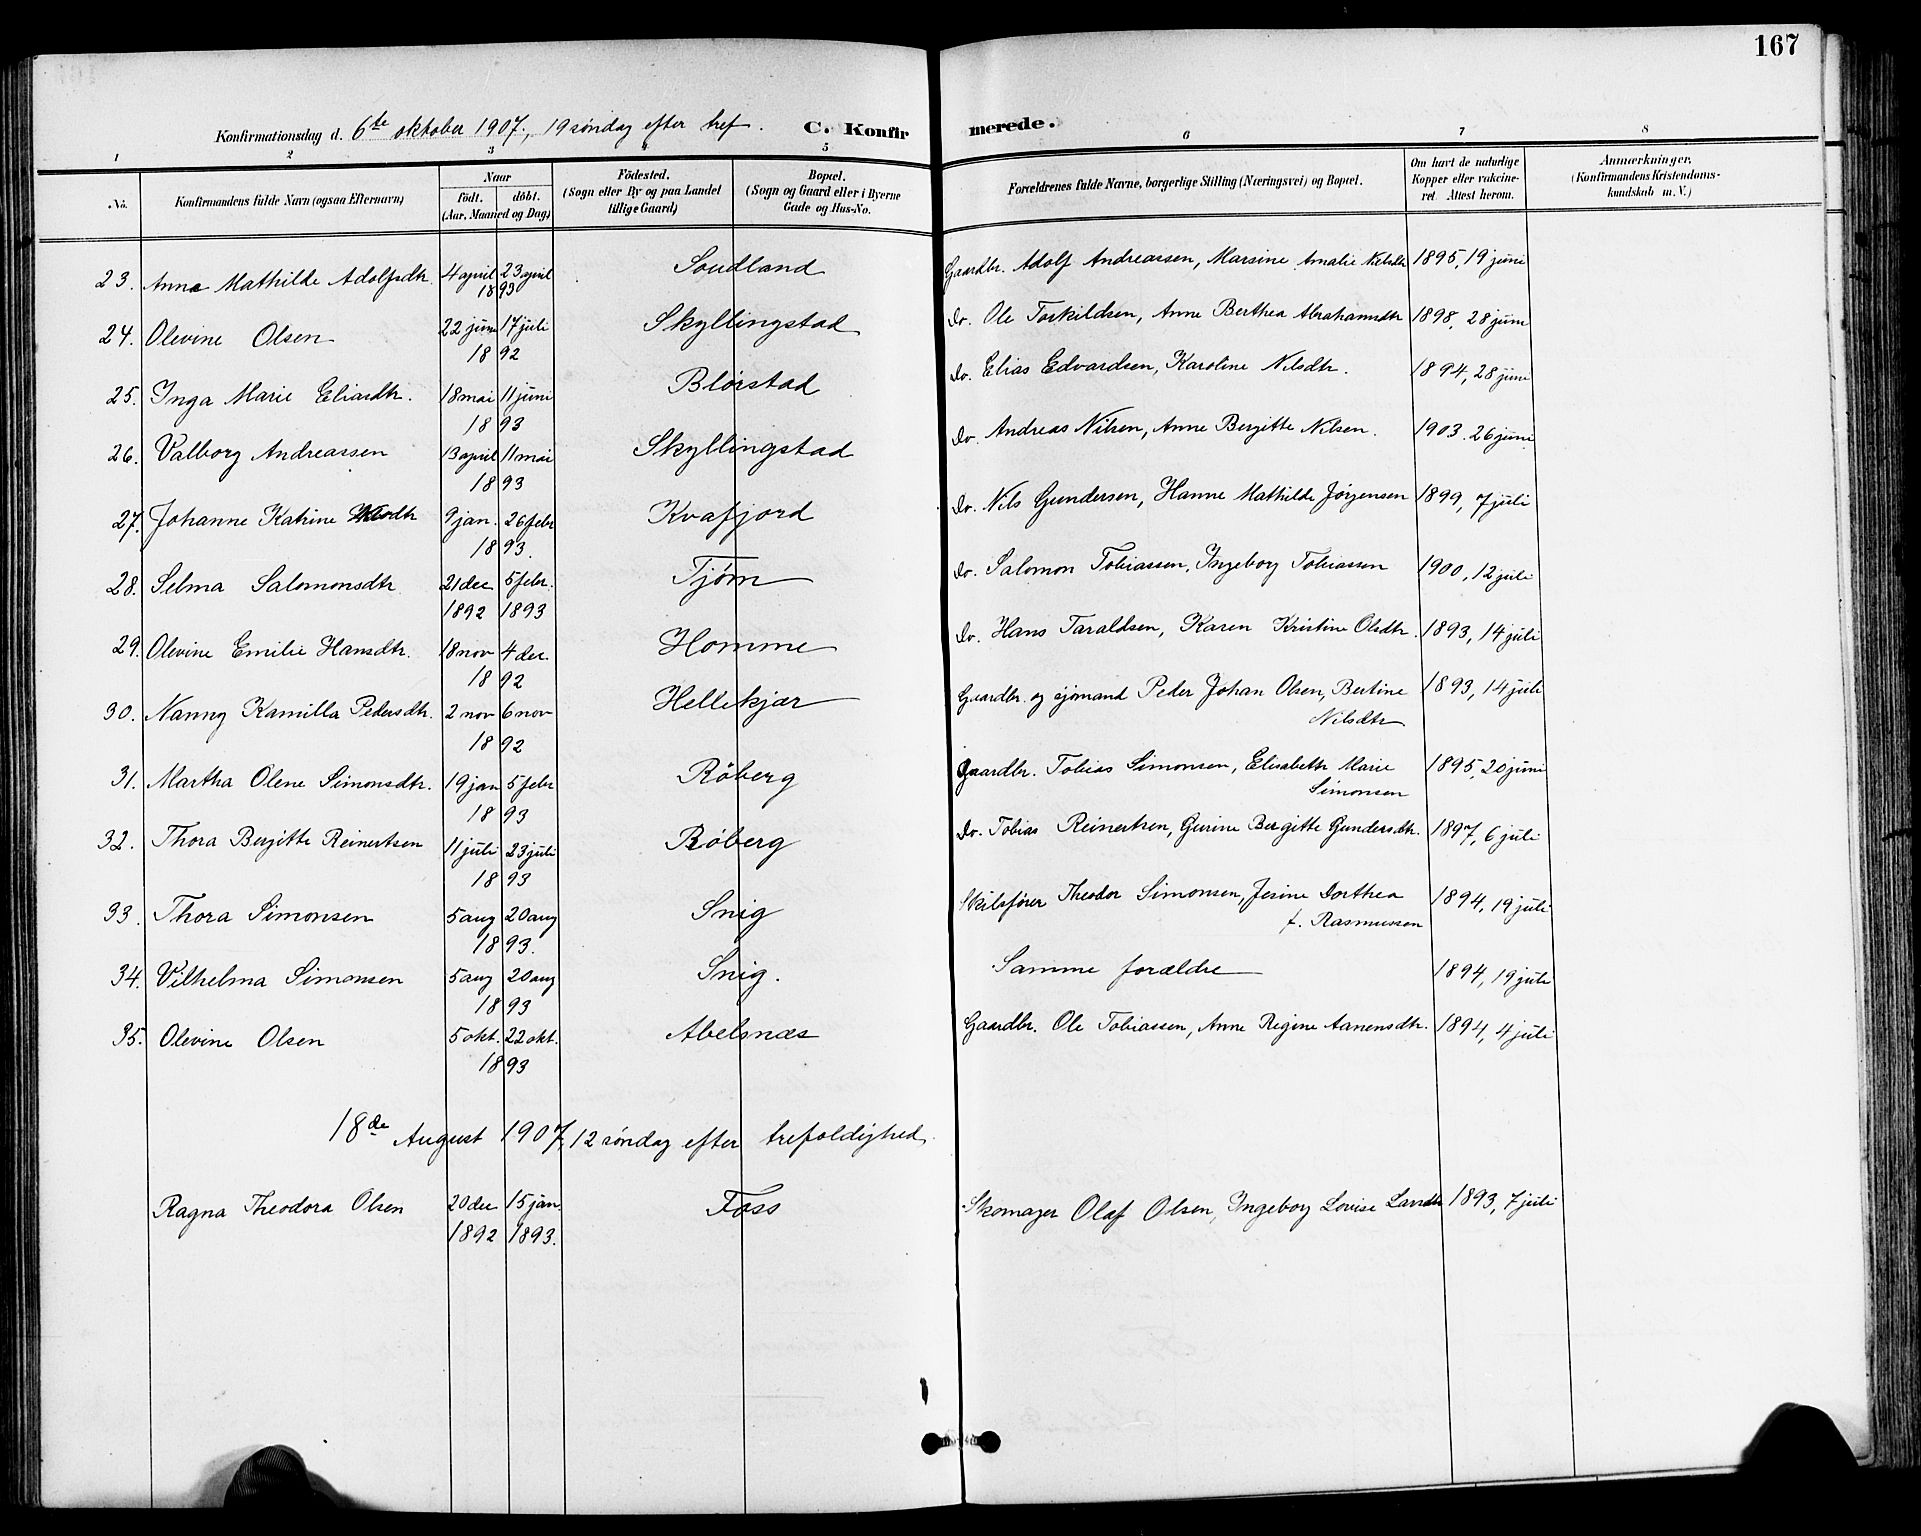 167
Konfirmationsdag d. 6te oktober 1907, 19 søndag efter tref. C. Konfirmerede.
1 2 3 4 5 6 7 8
No. Konfirmandens fulde Navn (ogsaa Efternavn) Naar født. døbt. (Aar, Maaned og Dag) Födested. (Sogn eller By og paa Landet tillige Gaard) Bopæl. (Sogn og Gaard eller i Byerne Gade og Hus-No. Forældrenes fulde Navne, borgerlige Stilling (Næringsvei) og Bopæl. Om havt de naturlige Kopper eller vakcineret Attest herom. Anmærkninger, (Konfirmandens Kristendomskundskab m. V.)
23. Anna Mathilde Adolfsdtr. 4 april 23 april 1893 Soudland Gaardbr. Adolf Andreassen, Marsine Amalie Nielsdtr 1895, 19 juni
24. Olevine Olsen 22 juni 17 juli 1892 Skyllingstad do. Ole Torkildsen, Anne Berthea Abrahamsdtr 1898, 28 juni
25. Inga Marie Eliasdtr. 18 mai 11 juni 1893 Blørstad do. Elias Edvardsen, Karoline Nilsdtr. 1894, 28 juni
26. Valborg Andreassen 13 april 11 mai 1893 Skyllingstad do. Andreas Nilsen, Anne Bergitte Nilsen. 1903. 26 juni
27. Johanne Katrine 9 jan. 26 febr 1893. Kvafjord do. Nils Gundersen, Hanne Mathilde Jørgensen 1899, 7 juli
28. Selma Salomonsdtr 21 dec 1892 5 febr. 1893 Tjøm do. Salomon Tobiassen, Ingeborg Tobiassen 1900, 12 juli
29. Olevine Emilie Hansdtr. 18 nov 4 dec. 1892 Homme do. Hans Taraldsen, Karen Kristine Olsdtr. 1893, 14 juli
30. Nanny Kamilla Pedersdtr. 2 nov 6 nov 1892 Hellekjær Gaardbr. og sjømand Peder Johan Olsen, Bertine Nilsdtr 1893, 14 juli
31. Martha Olene Simonsdtr. 19 jan 5 febr 1893 Röberg Gaardbr. Tobias Simonsen, Elisabeth Marie Simonsen 1895, 20 juni
32. Thora Bergitte Reinertsen 11 juli 23 juli 1893 Röberg do. Tobias Reinertsen, Gurine Bergitte Gundersdtr. 1897, 6 juli
33. Thora Simonsen 5 aug 20 aug 1893. Snig Skibsfører Theodor Simonsen, Jesine Dorthea f. Rasmussen 1894, 19 juli
34. Vilhelma Simonsen 5 aug 20 aug 1893 Snig. Samme forældre 1894, 19 juli
35. Olevine Olsen 5 okt. 22 okt. 1893 Abelsnæs Gaardbr. Ole Tobiassen, Anne Regine Aanensdtr. 1894, 4 juli
18de August 1907, 12 søndag efter trefoldighed.
Ragna Theodora Olsen 20 dec 1892 15 jan. 1893. Foss Skomager Olaf Olsen, Ingeborg Lovise 1893, 7 juli